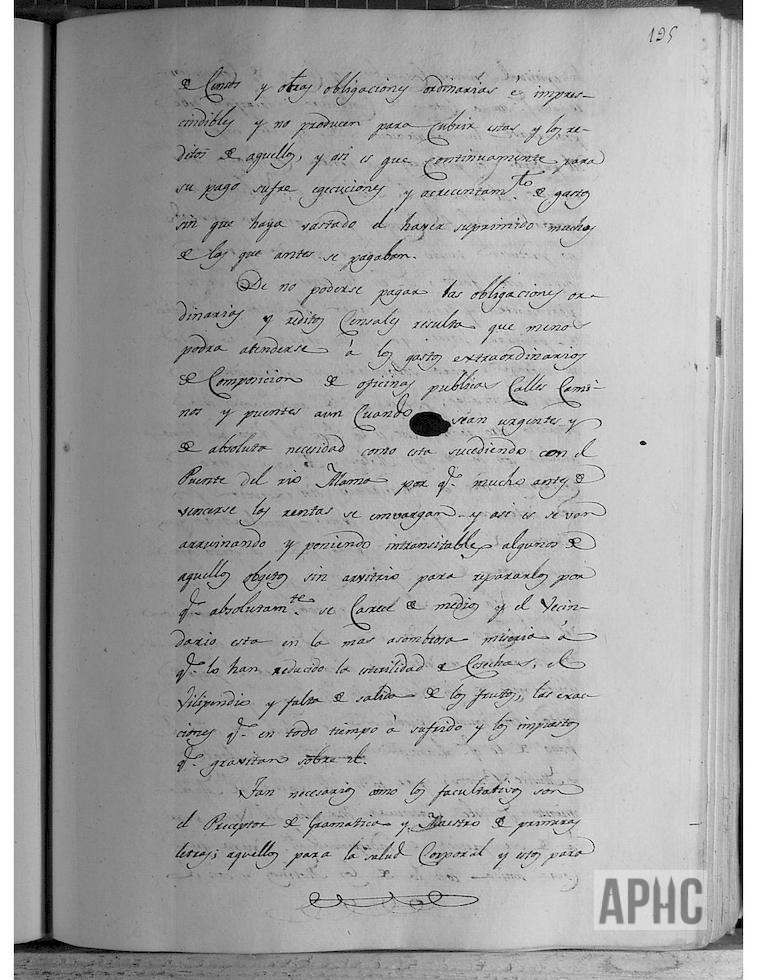 195
de Censos y otras obligaciones ordinarias é impres-
cindibles y no producen para Cubrir estas y los re-
ditos de aquellos, y asi es que continuamente para
su pago sufre egecuciones y acrecentam.to de gastos
sin que haya vastado el haver suprimido muchos
de los que antes se pagaban.
De no poderse pagar las obligaciones or-
dinarias y reditos Censales resulta que menos
podra atenderse á los gastos extraordinarios
de Composicion de oficinas publicas Calles Cami-
nos y puentes aun Cuando sean urgentes y
de absoluta necesidad como esta sucediendo con el
Puente del rio Alama por q.e mucho antes de
vencerse las rentas se envargan y asi es se van
arruinando y poniendo intransitables algunos de
aquellos obgetos sin arvitrio para repararlos por
q.e absolutam.te se Carece de medios y el Vecin-
dario esta en la mas asombrosa miseria á
q.e lo han reducido la esterilidad de Cosechas, el
Vilipendio y falta de salida de los frutos, las exac-
ciones q.e en todo tiempo á sufrido y los impuestos
q.e gravitan sobre el.
Tan necesarios como los facultativos son
el Preceptor de Gramatica y Maestro de primeras
letras; aquellos para la salud Corporal y estos para
APHC